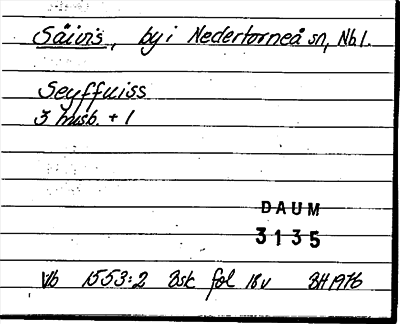 Säivis, by i Nedertorneå sn, Nb l.
Seyffuiss
3 husb. + 1
DAUM
3135
Vb 1553:2 Bsk fol 18v BH 1976